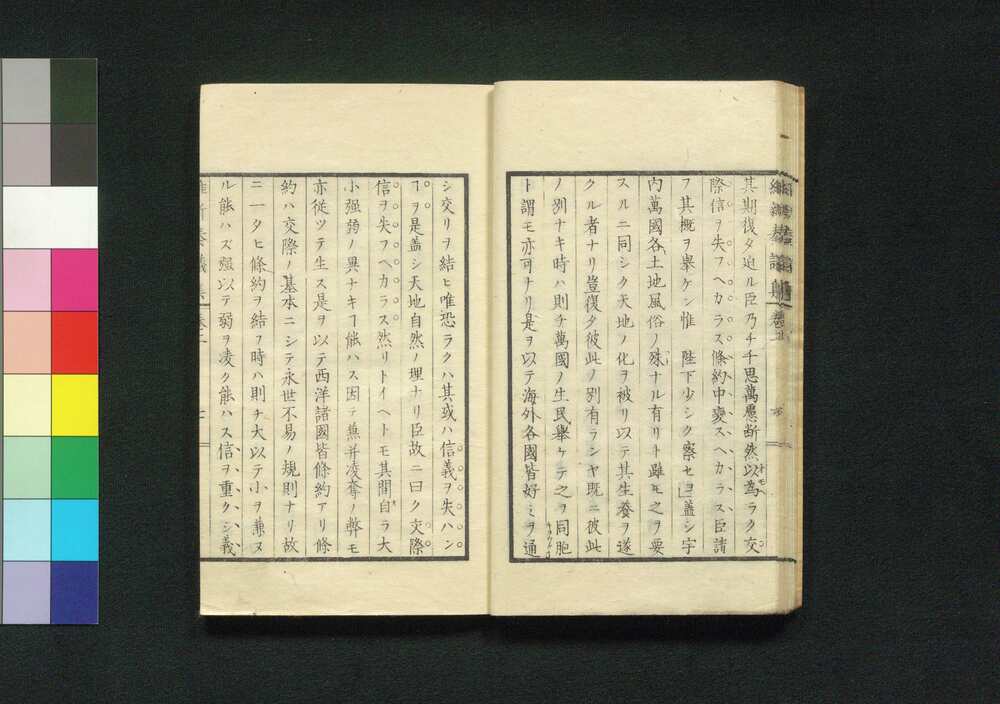 其期復タ迫ル臣乃チ千思萬慮斷然以為ラク交
際信ヲ失フヘカラス條約中変スヘカラス臣請
フ其概ヲ擧ケン惟 陛下少シク察セヨ」蓋シ宇
内萬國各土地風俗ノ殊ナル有リト雖モ之ヲ要
スルニ同シク天地ノ化ヲ被リ以テ其生養ヲ遂
クル者ナリ豈復タ彼此ノ別有ランヤ既ニ彼此
ノ別ナキ時ハ則チ萬國ノ生民擧ケテ之ヲ同胞
ト謂モ亦可ナリ是ヲ以テ海外各國皆好ミヲ通
シ交リヲ結ヒ唯恐ラクハ其或ハ信義ヲ失ハン
ヿヲ是盖シ天地自然ノ理ナリ臣故ニ曰ク交際
信ヲ失フヘカラス然リトイヘトモ其間自ラ大
小强弱ノ異ナキヿ能ハス因テ兼并凌奪ノ弊モ
亦従ツテ生ス是ヲ以テ西洋諸國皆條約アリ條
約ハ交際ノ基本ニシテ永世不易ノ規則ナリ故
ニ一タヒ條約ヲ結フ時ハ則チ大以テ小ヲ兼ヌ
ル能ハズ强以テ弱ヲ凌ク能ハス信ヲ重クシ義